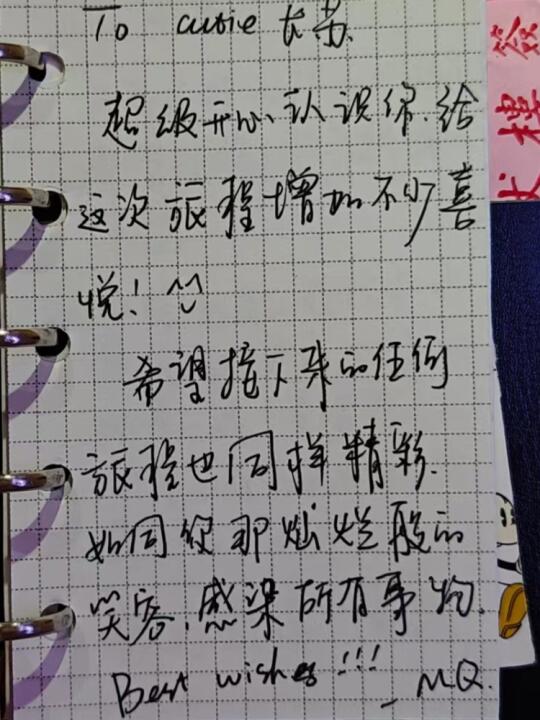 To cutie 大苏
超级开心认识你.给
这次旅程增加不少喜
悦! ^^
希望接下来的任何
旅程也同样精彩.
如同您那灿烂般的
笑容.感染所有事物.
Best wishes!!!
_ MQ.
签